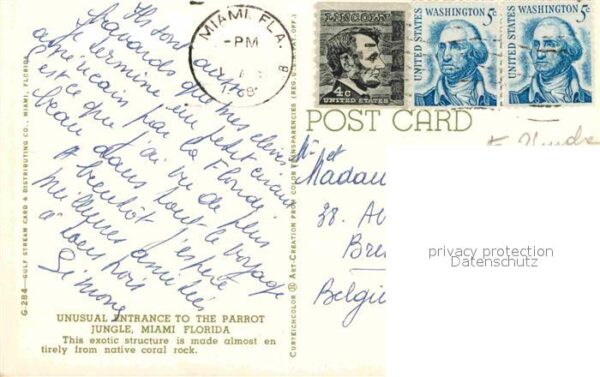 MIAMI, FLA.
-PM
LINCOLN
4¢
UNITED STATES
WASHINGTON 5c
UNITED STATES
WASHINGTON 5c
UNITED STATES
POST CARD
Ils sont aussi
que mes élèves
je termine un petit circuit
américain par la Floride
est ce que j'ai vu de plus
beau dans tout le voyage
A bientôt j'espère
meilleures amitiés
à tous trois
Simone
M. et
Madam
38. A
Bru
Belgi
privacy protection
Datenschutz
G-284—GULF STREAM CARD & DISTRIBUTING CO., MIAMI, FLORIDA
CURTEICHCOLOR ® ART-CREATION FROM COLOR TRANSPARENCIES (REG. U.S.A. PAT. OFF.)
UNUSUAL ENTRANCE TO THE PARROT
JUNGLE, MIAMI FLORIDA
This exotic structure is made almost en
tirely from native coral rock.